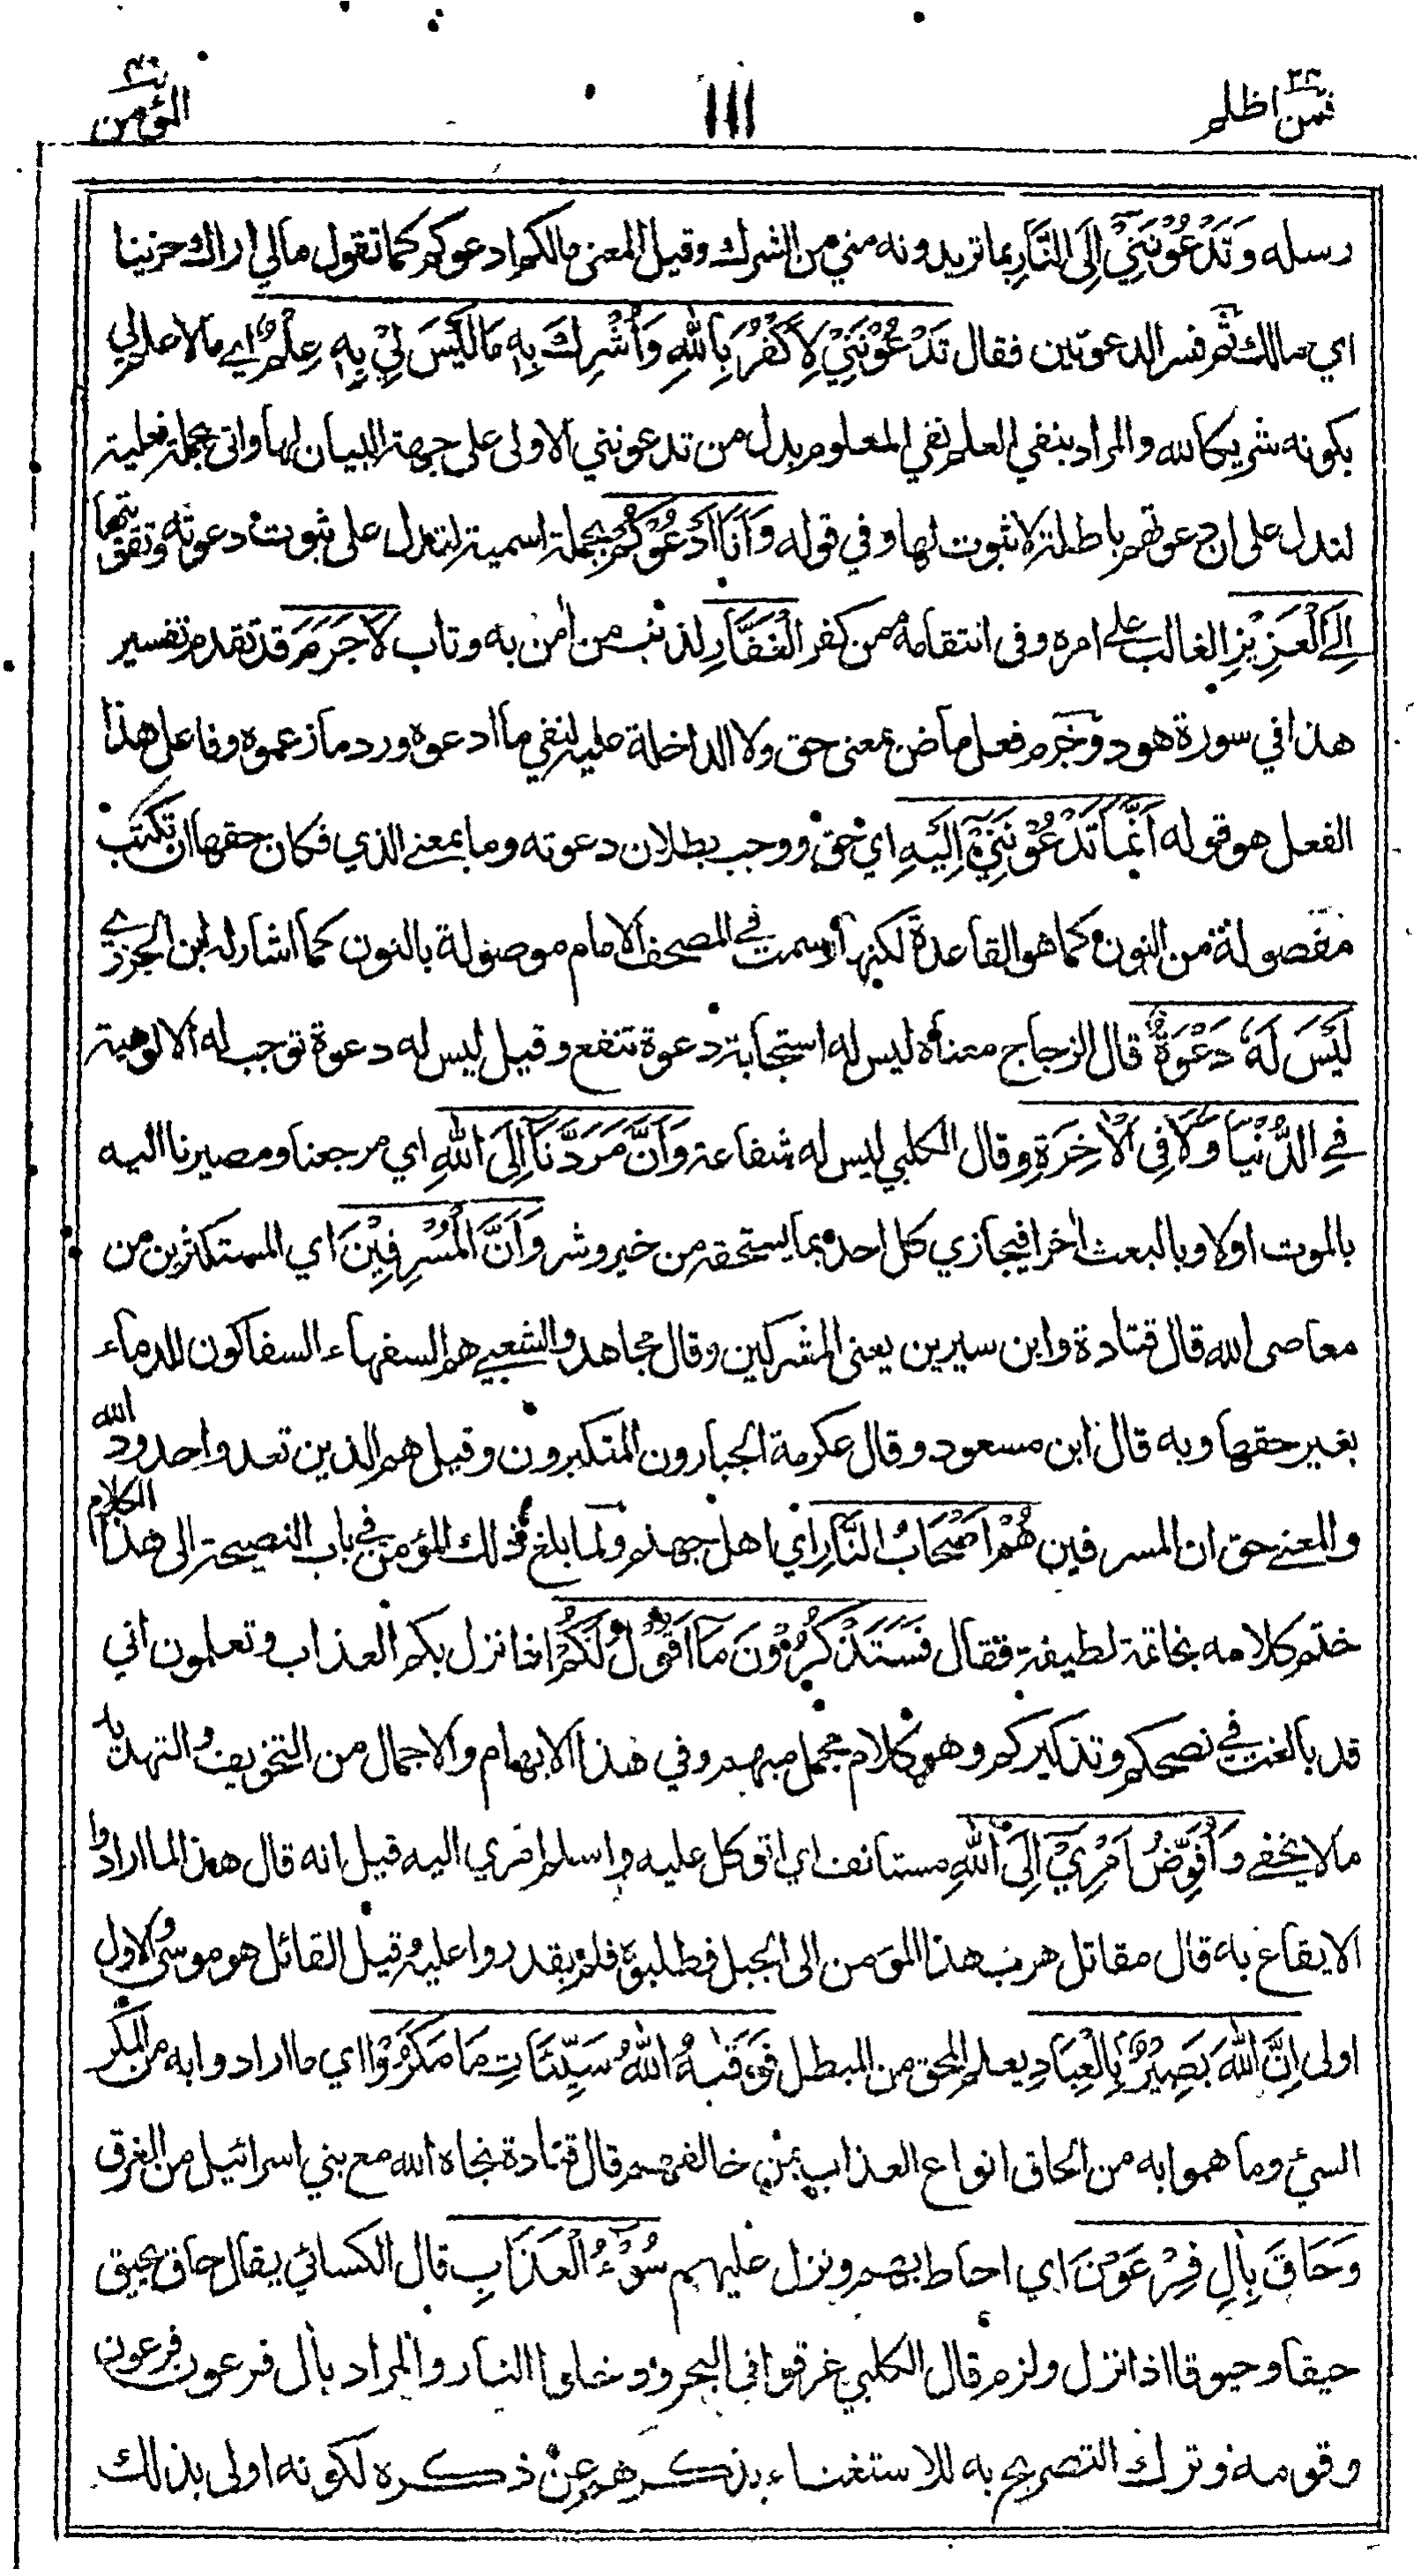 فمن اظلم ٢٤
١١١
المؤمن ٤٠
رسله وَتَدْعُوْنَنِيْٓ اِلَى النَّارِ بما تريدونه مني من الشرك وقيل المعنى مالكم ادعوكم كما تقول مالي اراك حزينا
اي مالك ثم فسر الدعوتين فقال تَدْعُوْنَنِيْ لِاَكْفُرَ بِاللّٰهِ وَاُشْرِكَ بِهٖ مَا لَيْسَ لِيْ بِهٖ عِلْمٌ اي ما لا علم لي
بكونه شريكا لله والمراد بنفي العلم نفي المعلوم بدل من تدعونني الاولى على جهة البيان لها واتى بجملة فعلية
لتدل على ان دعوتهم باطلة لا ثبوت لها وفي قوله وَاَنَا اَدْعُوْكُمْ بجملة اسمية لتدل على ثبوت دعوته وتقويتها
اِلَى الْعَزِيْزِ الغالب على امره وفي انتقامه ممن كفر الْغَفَّارِ لذنب من اٰمن به وتاب لَا جَرَمَ قد تقدم تفسير
هذا في سورة هود وجَرم فعل ماض بمعنى حق ولا الداخلة عليه لنفي ما ادعوه ورد ما زعموه وفاعل هذا
الفعل هو قوله اَنَّمَا تَدْعُوْنَنِيْٓ اِلَيْهِ اي حق ووجب بطلان دعوته وما بمعنى الذي فكان حقها ان تكتب
مفصولة من النون كما هو القاعدة لكنها رسمت في المصحف الامام موصولة بالنون كما اشار له ابن الجزري
لَيْسَ لَهٗ دَعْوَةٌ قال الزجاج معناه ليس له استجابة دعوة تنفع وقيل ليس له دعوة توجب له الالوهية
فِي الدُّنْيَا وَلَا فِي الْاٰخِرَةِ وقال الكلبي ليس له شفاعة وَاَنَّ مَرَدَّنَآ اِلَى اللّٰهِ اي مرجعنا ومصيرنا اليه
بالموت اولا وبالبعث اٰخرا فيجازي كل احد بما يستحقه من خير وشر وَاَنَّ الْمُسْرِفِيْنَ اي المستكثرين من
معاصى الله قال قتادة وابن سيرين يعنى المشركين وقال مجاهد والشعبي هم السفهاء السفاكون للدماء
بغير حقها وبه قال ابن مسعود وقال عكرمة الجبارون المتكبرون وقيل هم الذين تعدوا حدود الله
والمعنى حق ان المسرفين هُمْ اَصْحَابُ النَّارِ اي اهل جهنم ولما بلغ ذلك المؤمن في باب النصيحة الى هذا الكلام
ختم كلامه بخاتمة لطيفة فقال فَسَتَذْكُرُوْنَ مَآ اَقُوْلُ لَكُمْ اذا نزل بكم العذاب وتعلمون اني
قد بالغت في نصحكم وتذكيركم وهو كلام مجمل مبهم وفي هذا الابهام والاجمال من التخويف والتهديد
ما لا يخفى وَاُفَوِّضُ اَمْرِيْٓ اِلَى اللّٰهِ مستانف اي اتوكل عليه واسلم امري اليه قيل انه قال هذا لما ارادوا
الايقاع به قال مقاتل هرب هذا المؤمن الى الجبل فطلبوه فلم يقدروا عليه وقيل القائل هو موسى والاول
اولى اِنَّ اللّٰهَ بَصِيْرٌۢ بِالْعِبَادِ يعلم المحق من المبطل فَوَقٰىهُ اللّٰهُ سَيِّئَاتِ مَا مَكَرُوْا اي ما ارادوا به من المكر
السيئ وما هموا به من الحاق انواع العذاب بمن خالفهم قال قتادة نجاه الله مع بني اسرائيل من الغرق
وَحَاقَ بِاٰلِ فِرْعَوْنَ اي احاط بهم ونزل عليهم سُوْٓءُ الْعَذَابِ قال الكسائي يقال حاق يحيق
حيقا وحيوقا اذا نزل ولزم قال الكلبي غرقوا في البحر ودخلوا النار والمراد بآل فرعون فرعون
وقومه وترك التصريح به للاستغناء بذكرهم عن ذكره لكونه اولى بذلك